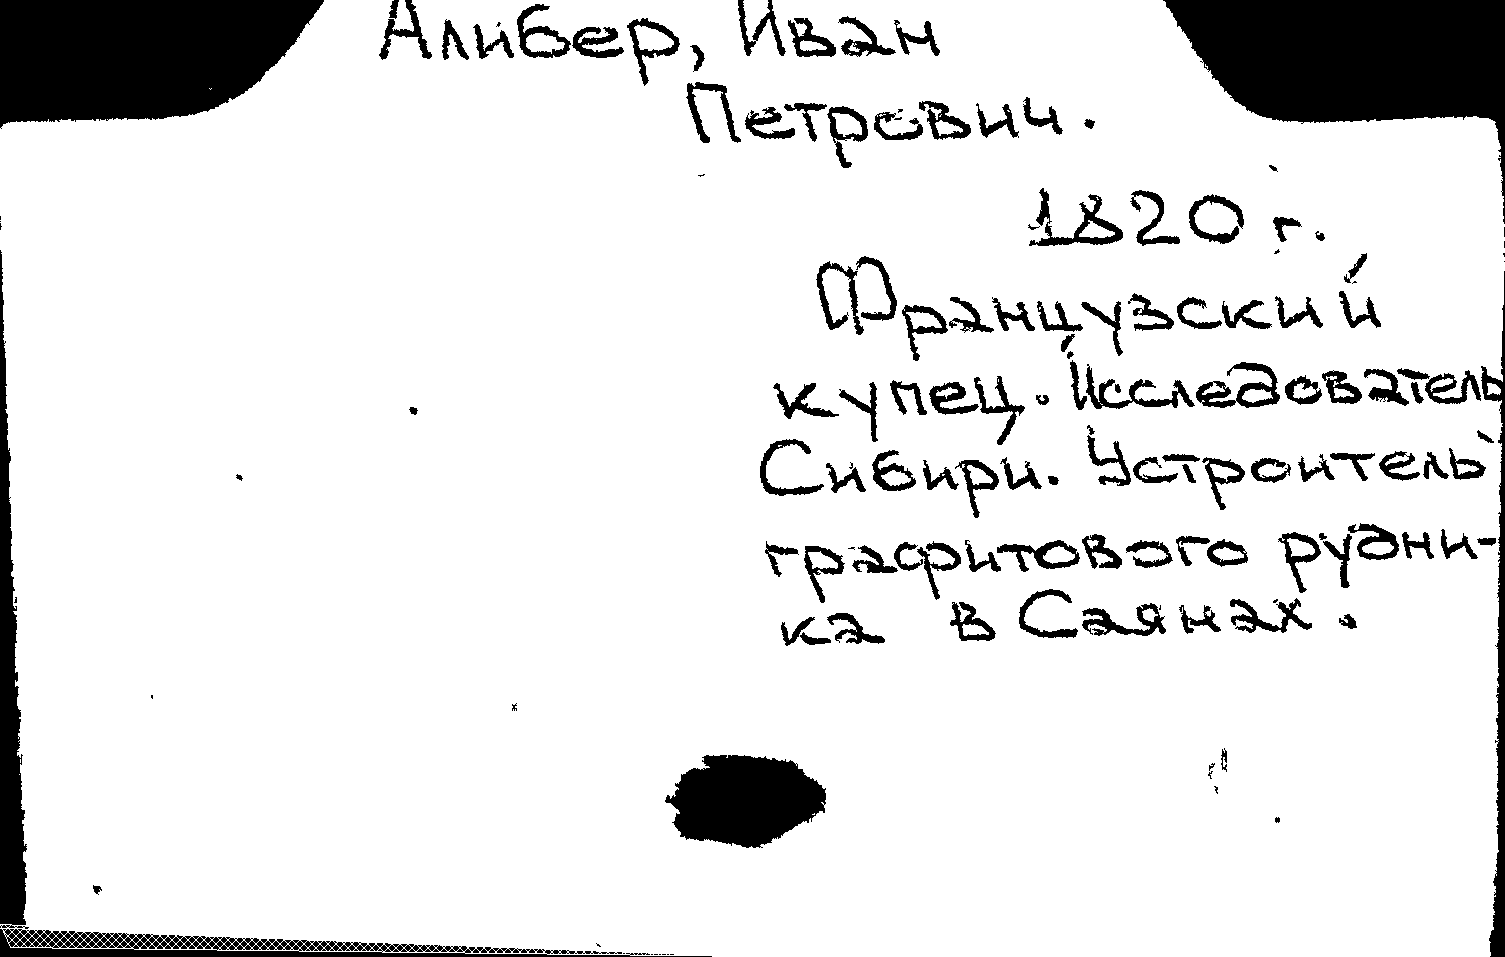 Алибер, Иван
Петрович.
1820 г.
Французский
купец. Исследователь
Сибири. Устроитель
графитового рудни-
ка в Саянах.